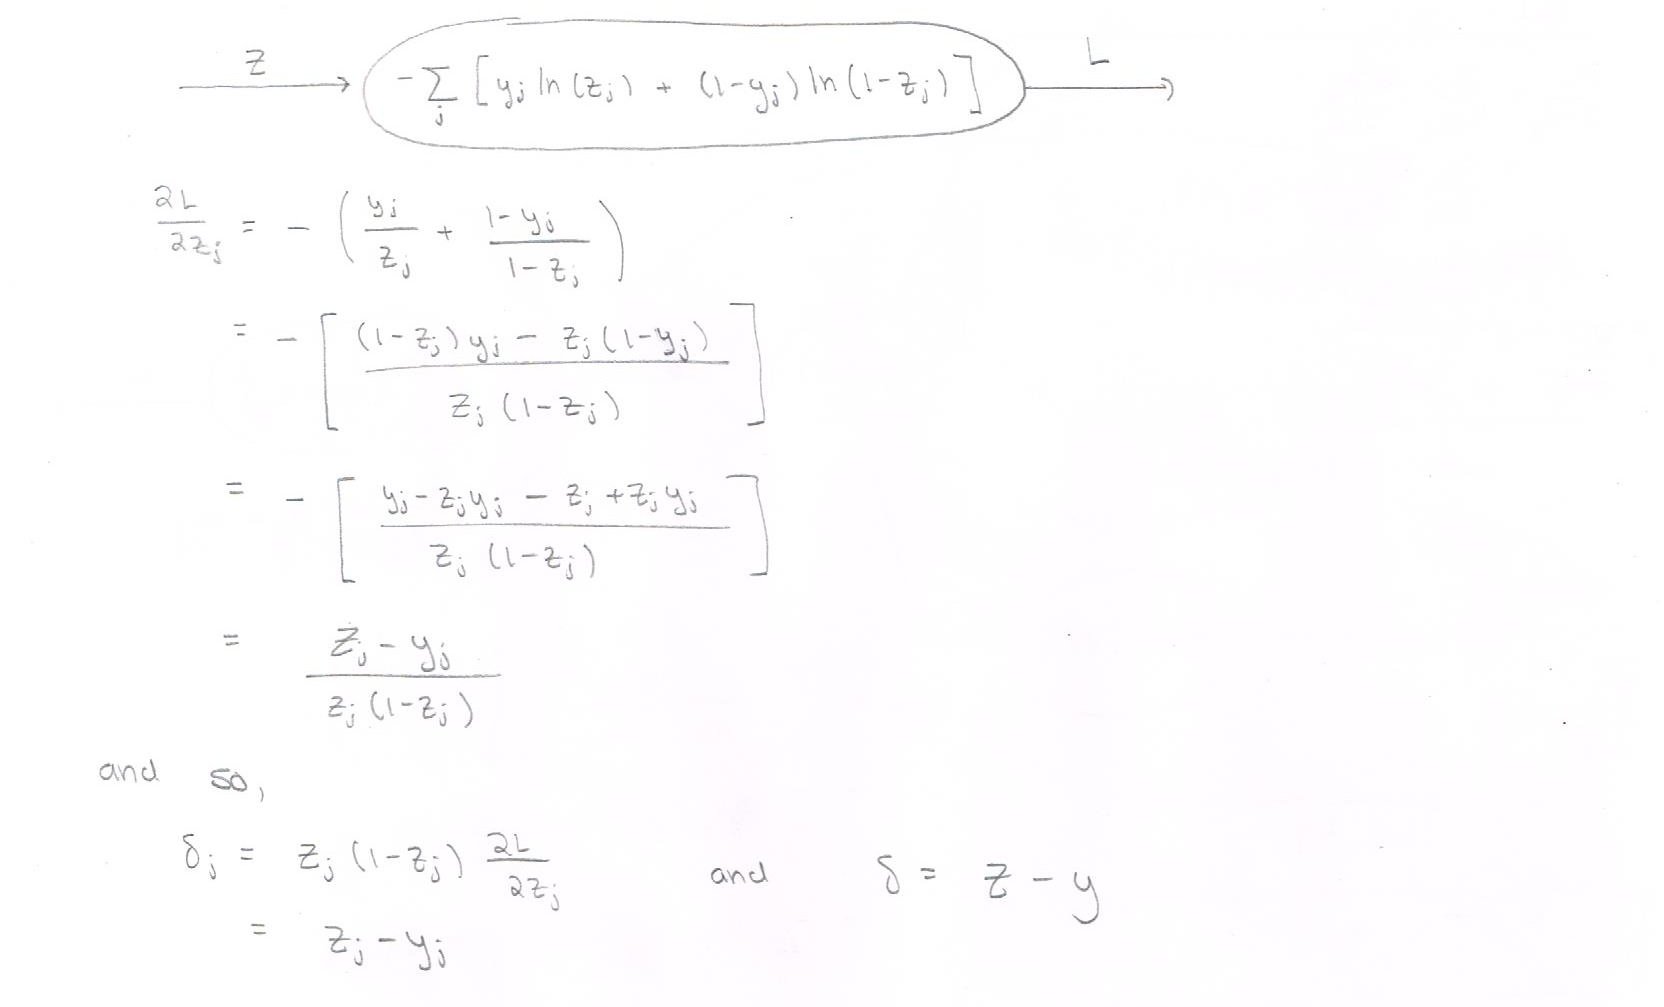 z → -∑_j [y_j ln(z_j) + (1-y_j) ln(1-z_j)] → L
∂L/∂z_j = - ( y_j/z_j + (1-y_j)/(1-z_j) )
= - [ ((1-z_j) y_j - z_j (1-y_j)) / (z_j (1-z_j)) ]
= - [ (y_j - z_j y_j - z_j + z_j y_j) / (z_j (1-z_j)) ]
= (z_j - y_j) / (z_j (1-z_j))
and so,
δ_j = z_j (1-z_j) ∂L/∂z_j and δ = z - y
= z_j - y_j